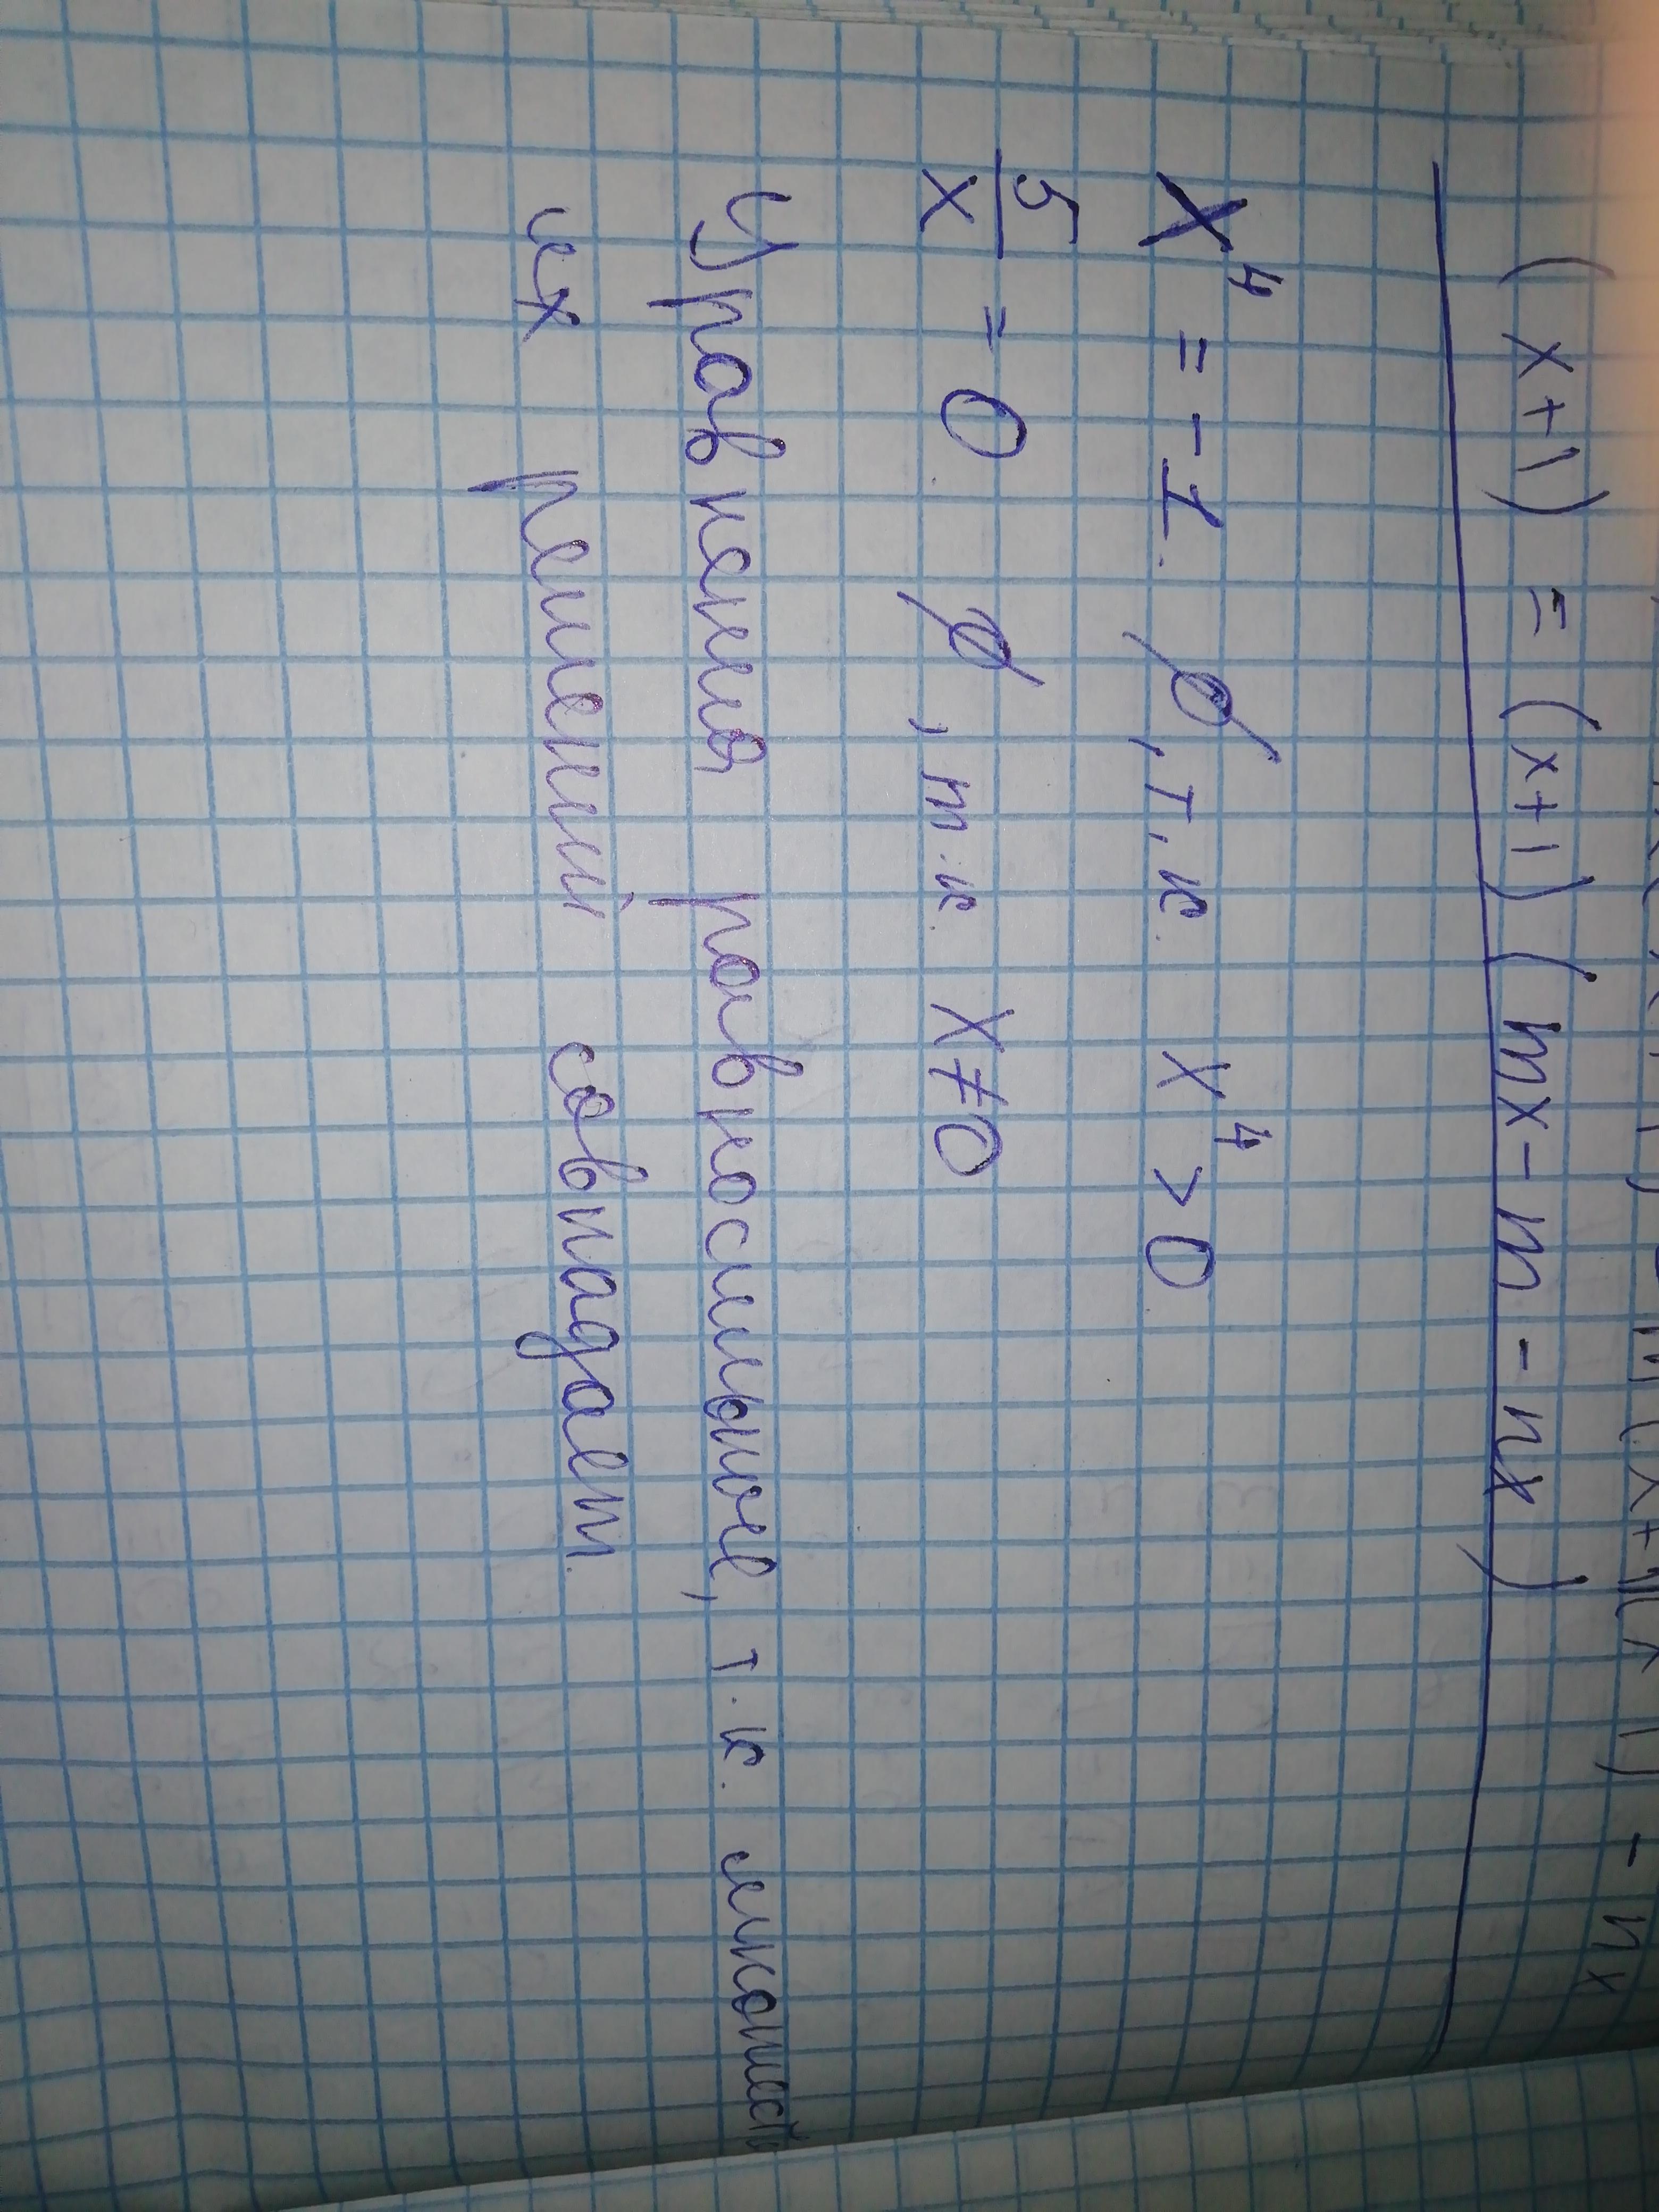 (x+1) = (x+1)(mx - m - nx)
X⁴ = -1. ∅, т.к. X⁴ > 0
5/x = 0 ∅, т.к. X ≠ 0
Уравнения равносильное, т.к. множеств
их решений совпадает.